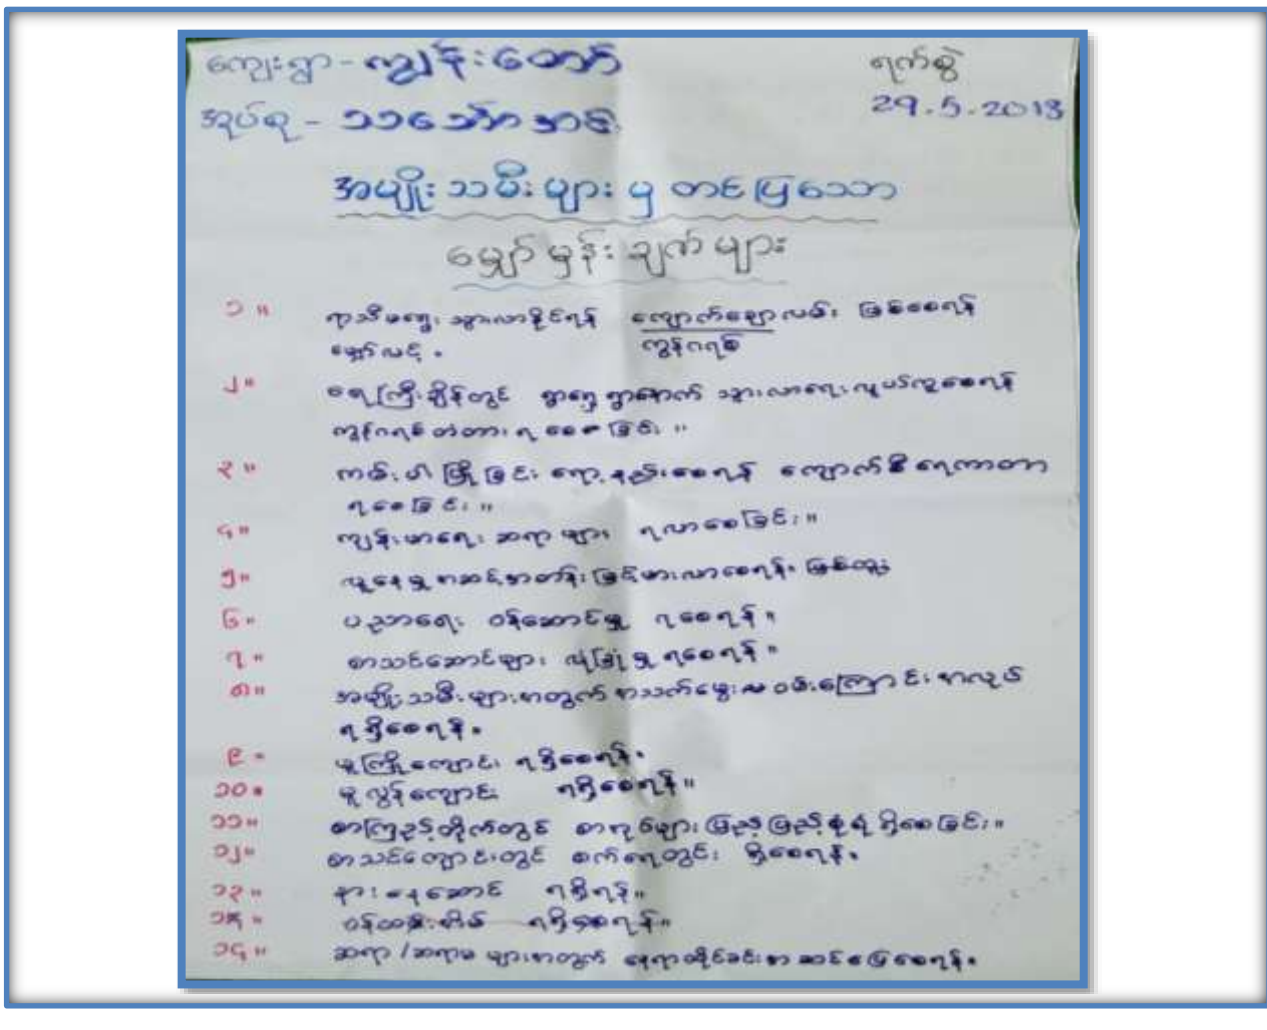 ကျေးရွာ - ကျွန်းတော်
ရက်စွဲ
အုပ်စု - သင်္ဘော
29.5.2018
အမျိုးသမီးများမှ တင်ပြသော
မျှော်မှန်းချက်များ
၁။ ရာသီမရွေး သွားလာနိုင်ရန် ကျောက်ချောလမ်း ဖြစ်စေရန်
မျှော်လင့်။ ကွန်ကရစ်
၂။ ရေကြီးချိန်တွင် ရွာရှေ့ရွာနောက် သွားလာရေးလွယ်ကူစေရန်
ကွန်ကရစ်တံတား ရစေခြင်း။
၃။ ကမ်းပါးပြိုခြင်း လျော့နည်းစေရန် ကျောက်စီရေကာတာ
ရစေခြင်း။
၄။ ကျန်းမာရေး ဆရာများ ရလာစေခြင်း။
၅။ လူနေမှုအဆင့်အတန်း မြင့်မားလာစေရန်။
၆။ ပညာရေး ဝန်ဆောင်မှု ရစေရန်။
၇။ စာသင်ဆောင်များ လုံခြုံမှု ရစေရန်။
၈။ အမျိုးသမီးများအတွက် အသက်မွေးဝမ်းကြောင်း အလုပ်
ရရှိစေရန်။
၉။ မူကြိုကျောင်း ရရှိစေရန်။
၁၀။ မူလွန်ကျောင်း ရရှိစေရန်။
၁၁။ စာကြည့်တိုက်တွင် စာအုပ်များ ပြည့်ပြည့်စုံစုံ ရှိစေခြင်း။
၁၂။ စာသင်ကျောင်းတွင် စက်ရေတွင်း ရှိစေရန်။
၁၃။ နားနေဆောင် ရရှိရန်။
ဝန်ထမ်းအိမ် ရရှိစေရန်။
၁၄။ ဆရာ/ဆရာမ များအတွက် နေရာထိုင်ခင်း အဆင်ပြေစေရန်။